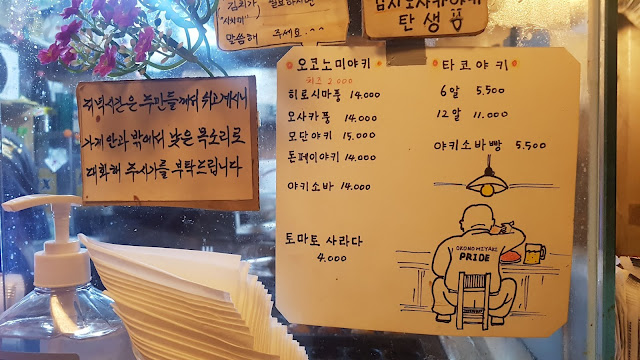 김치가 필요하시면
"시치미"
말씀해 주세요..
탄생
저녁시간은 주민들께서 쉬고계시니
가게 안과 밖에서 낮은 목소리로
대화해 주시기를 부탁드립니다
오코노미야키
치즈 2.000
히로시마풍 14.000
오사카풍 14.000
모단야키 15.000
돈페이야키 14.000
야키소바 14.000
토마토 사라다
4.000
타코야키
6알 5.500
12알 11.000
야키소바빵 5.500
OKONOMIYAKI
PRIDE